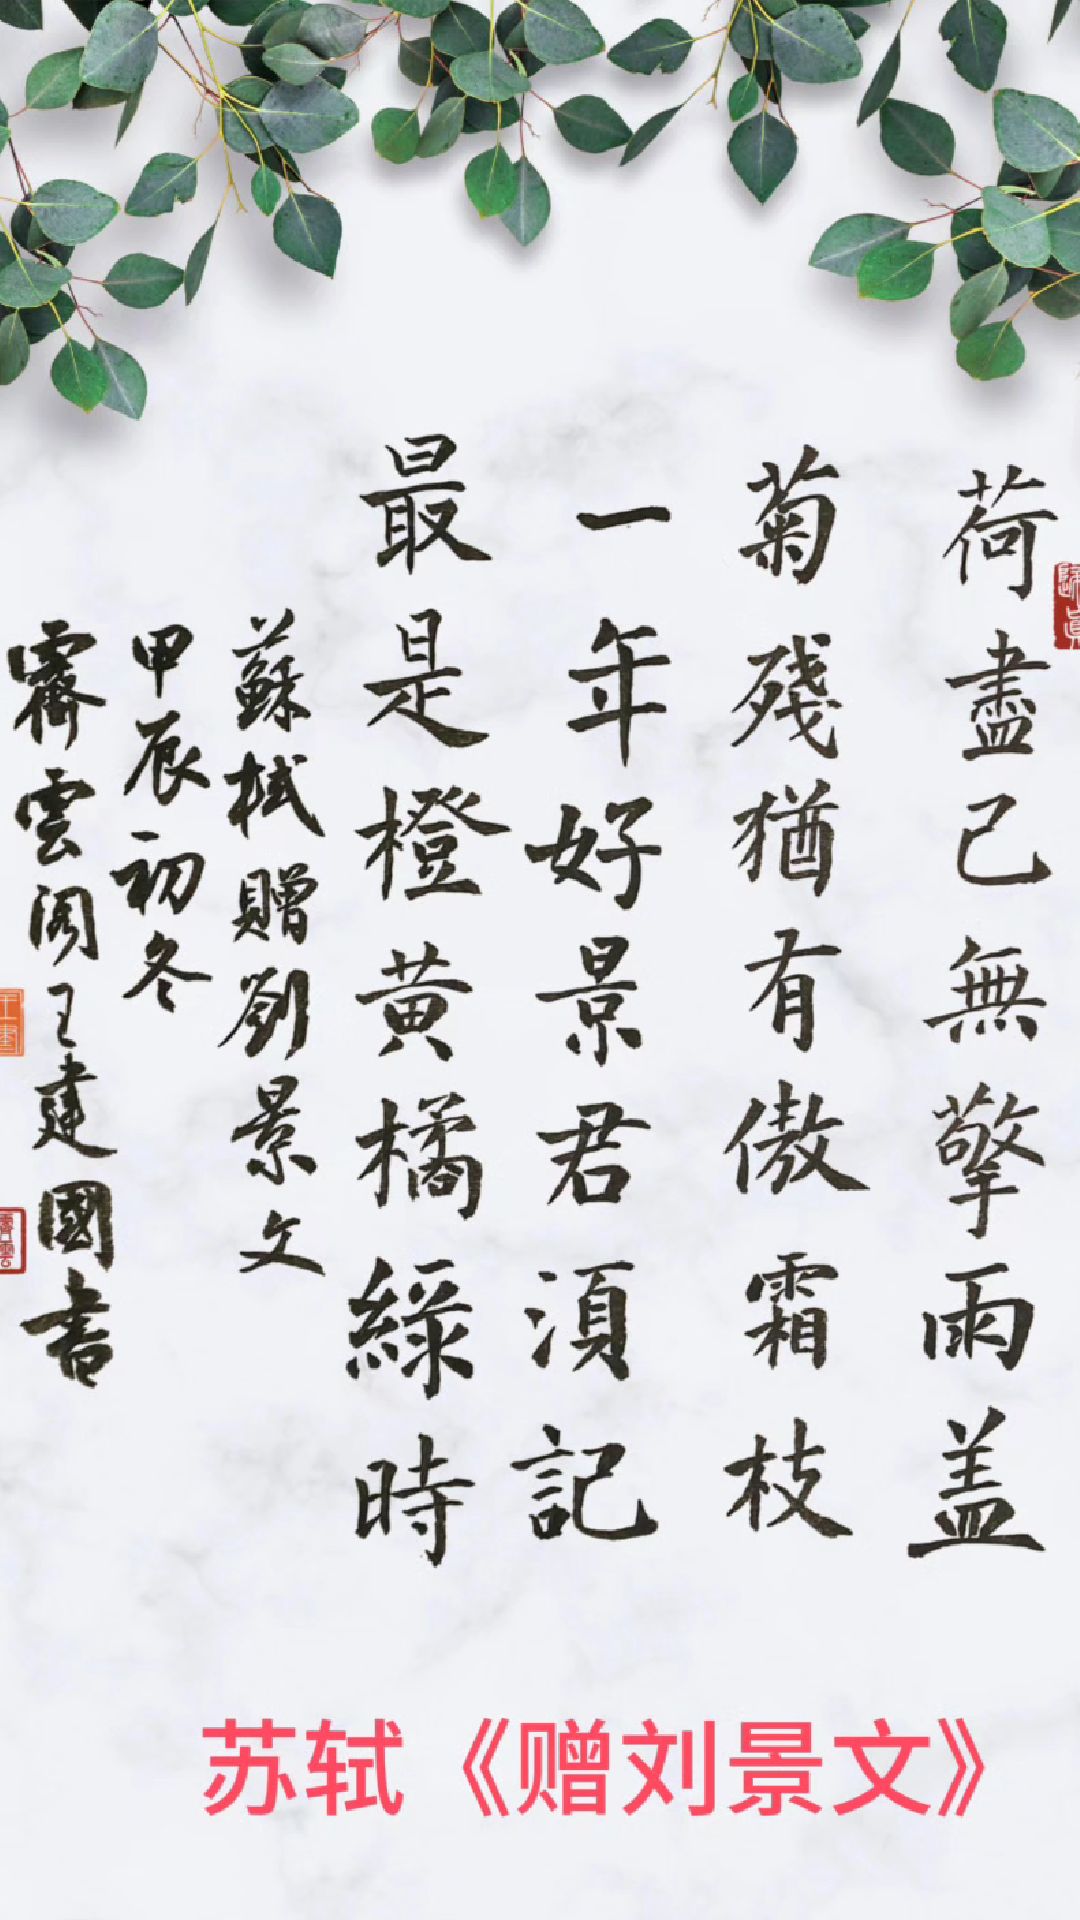 荷盡已無擎雨盖
菊殘猶有傲霜枝
一年好景君湏記
最是橙黄橘綠時
蘇軾贈劉景文
甲辰初冬
霽雲阁王建國書
苏轼《赠刘景文》